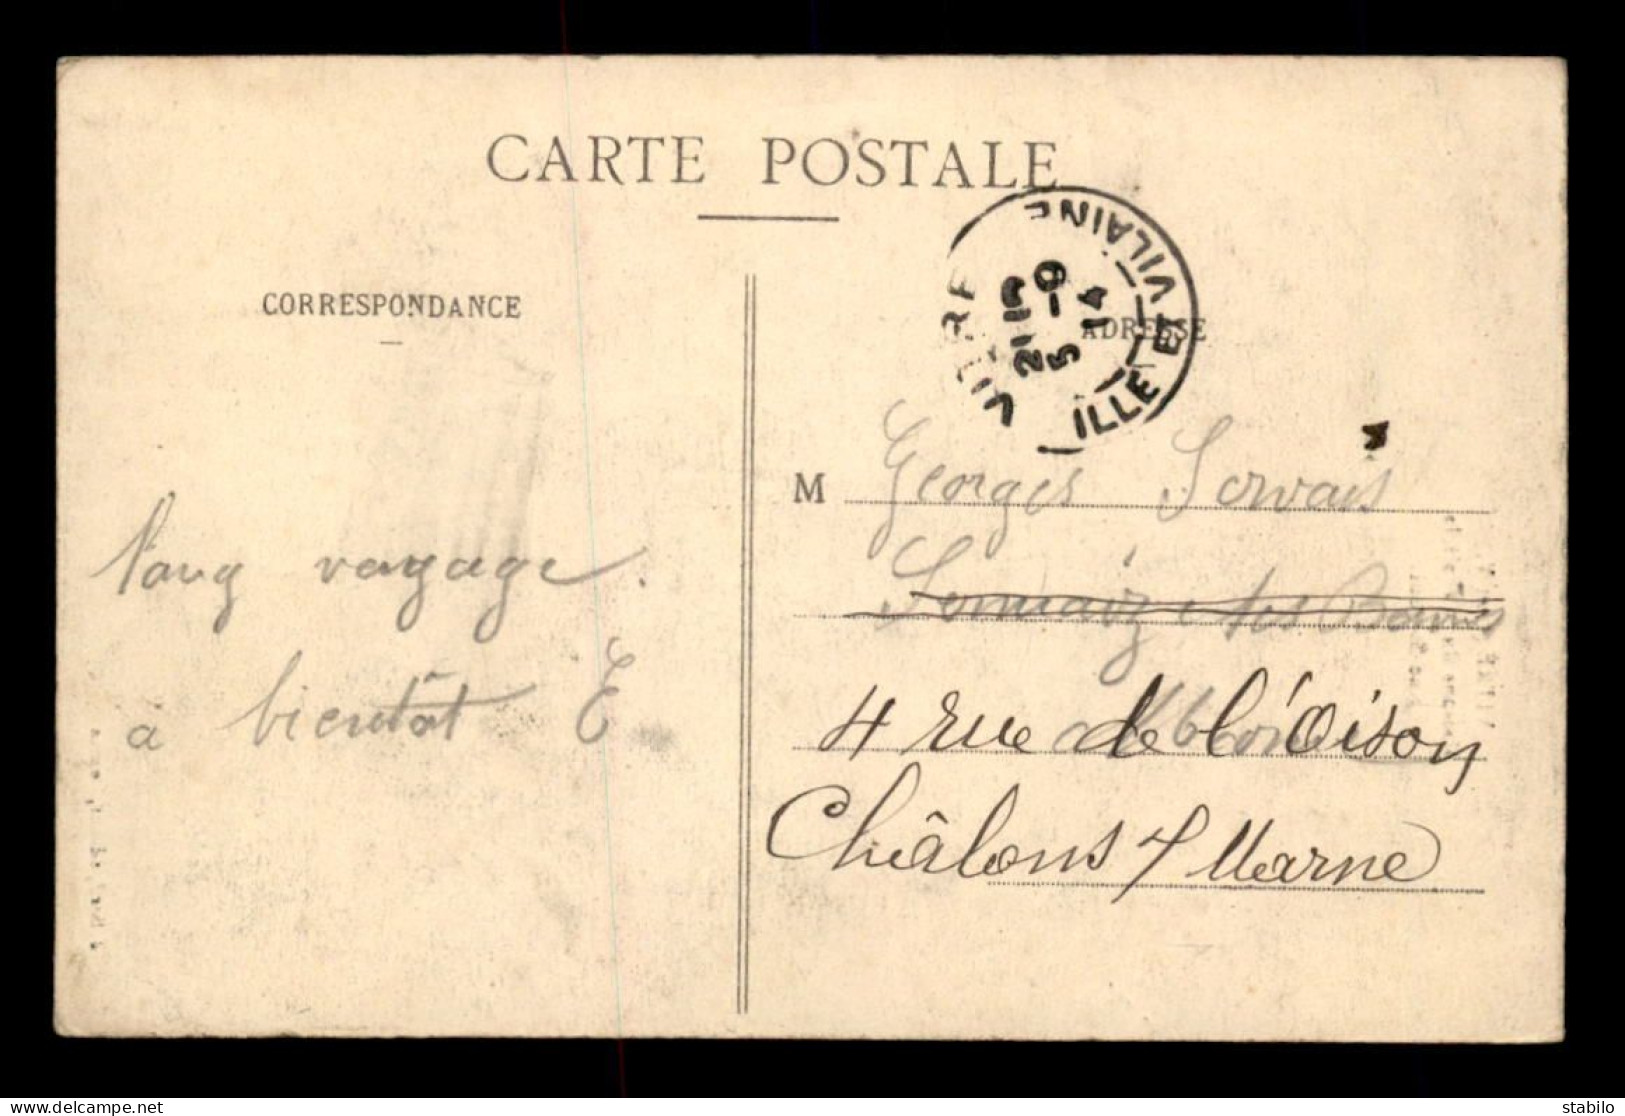 CARTE POSTALE
CORRESPONDANCE
ADRESSE
VITRE
ILLE ET VILAINE
5 - 9
14
M Georges Servais
Sermaize les Bains
4 rue de l'Oison
Châlons s/ Marne
long voyage.
a bientôt E
delcampe.net
stabilo